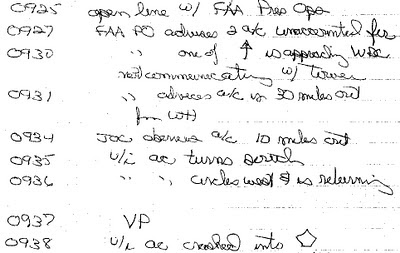 0925 open line w/ FAA Pres Ops
0927 FAA PO advises 2 a/c unaccounted for
0930 " one of ↑ is approachg WDC
not communicating w/ Tower
0931 " advises a/c is 30 miles out
from WH
0934 JOC observes a/c 10 miles out
0935 u/i ac turns south
0936 " " circles west & is returning
0937 VP
0938 u/i ac crashed into ⬠